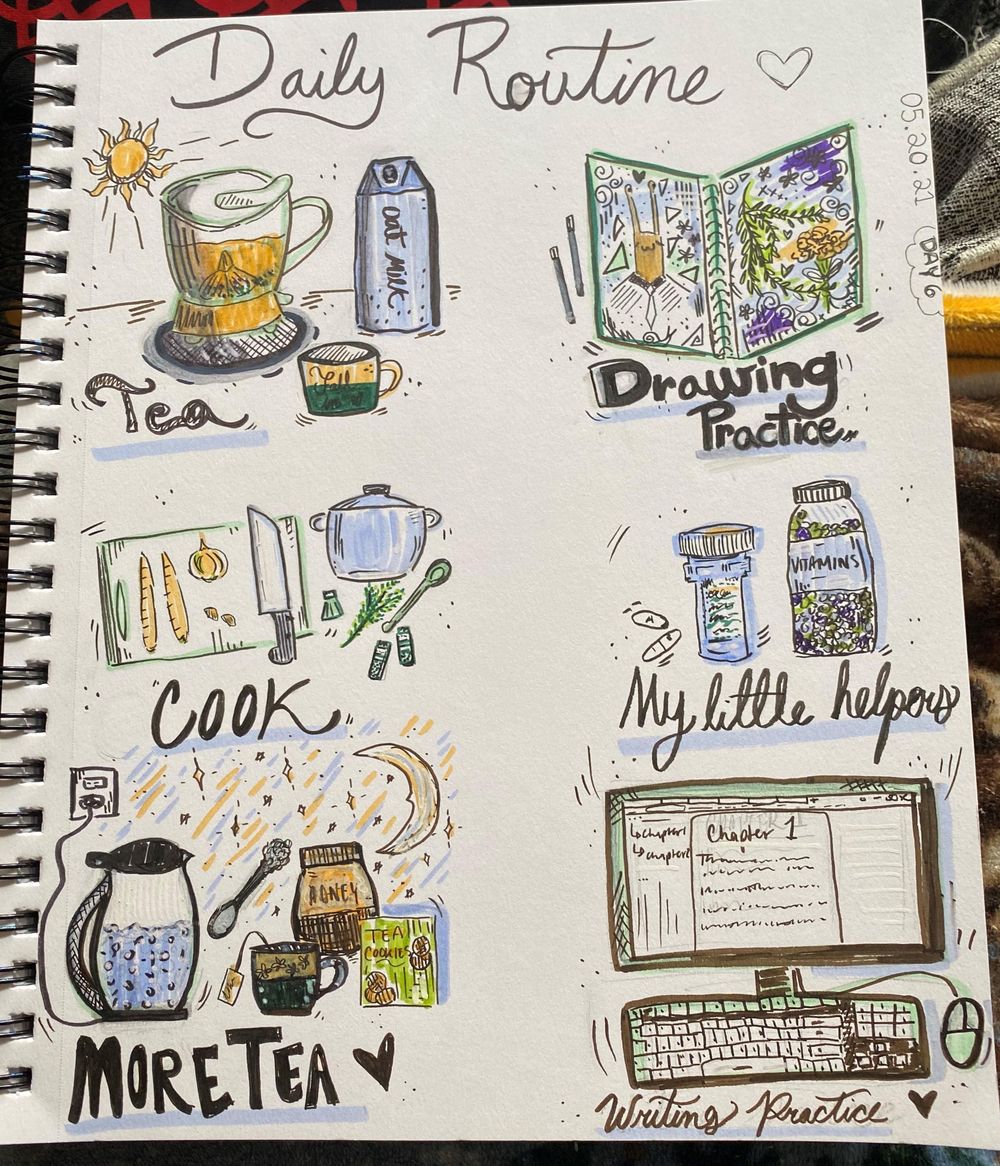 Daily Routine
05.20.21
DAY 6
Oat Milk
Tea
Drawing
Practice
VITAMINS
COOK
My little helpers
HONEY
TEA
COOKIES
MORE TEA
chapter1
chapter2
Chapter 1
Writing Practice